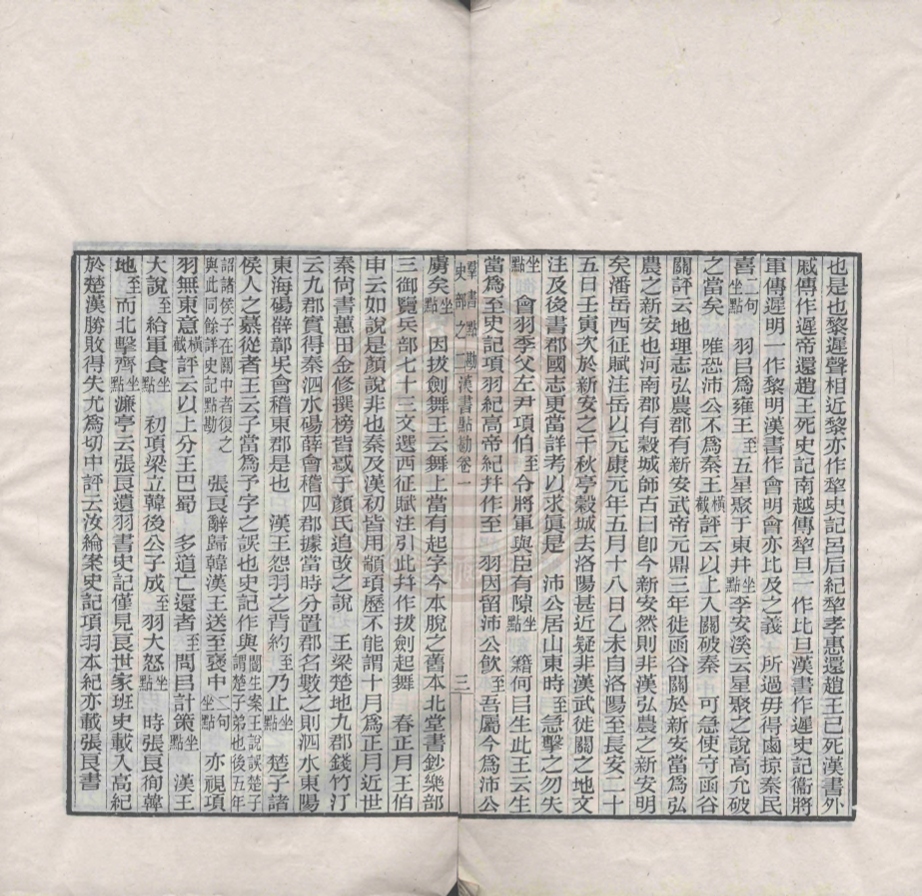 也是也黎遲聲相近黎亦作犂史記呂后紀犂孝惠還趙王已死漢書外
戚傳作遲帝還趙王死史記南越傳犂旦一作比旦漢書作遲史記衞將
軍傳遲明一作黎明漢書作會明會亦比及之義　所過毋得鹵掠秦民
喜二句坐點　羽㠯爲雍王至五星聚于東井坐點李安溪云星聚之說高允破
之當矣　唯恐沛公不爲秦王橫截評云以上入關破秦　可急使守函谷
關評云地理志弘農郡有新安武帝元鼎三年徙函谷關於新安當爲弘
農之新安也河南郡有穀城師古曰卽今新安然則非漢弘農之新安明
矣潘岳西征賦注岳以元康元年五月十八日乙未自洛陽至長安二十
五日壬寅次於新安之千秋亭穀城去洛陽甚近疑非漢武徙關之地文
注及後書郡國志更當詳考以求眞是　沛公居山東時至急擊之勿失
坐點　會羽季父左尹項伯至合將軍與臣有隙坐點　籍何㠯生此王云生
當爲至史記項羽紀高帝紀幷作至　羽因留沛公飮至吾屬今爲沛公
羣書點勘　史部之二　漢書點勘卷一　三
虜矣坐點　因拔劍舞王云舞上當有起字今本脫之舊本北堂書鈔樂部
三御覽兵部七十三文選西征賦注引此幷作拔劍起舞　春正月王伯
申云如說是顏說非也秦及漢初皆用顓頊歷不能謂十月爲正月近世
秦尙書蕙田金修撰榜皆惑于顏氏追改之說　王梁楚地九郡錢竹汀
云九郡實得秦泗水碭薛會稽四郡據當時分置郡名數之則泗水東陽
東海碭薛鄣吳會稽東郡是也　漢王怨羽之背約至乃止坐點　楚子諸
侯人之慕從者王云子當爲予字之誤也史記作與闓生案王說誤楚子謂楚子弟也後五年
詔諸侯子在關中者復之與此同餘詳史記點勘　張良辭歸韓漢王送至襃中二句坐點　亦視項
羽無東意橫截評云以上分王巴蜀　多道亡還者至問㠯計策坐點　漢王
大說至給軍食坐點　初項梁立韓後公子成至羽大怒坐點　時張良徇韓
地至而北擊齊坐點濂亭云張良遺羽書史記僅見良世家班史載入高紀
於楚漢勝敗得失尤爲切中評云汝綸案史記項羽本紀亦載張良書